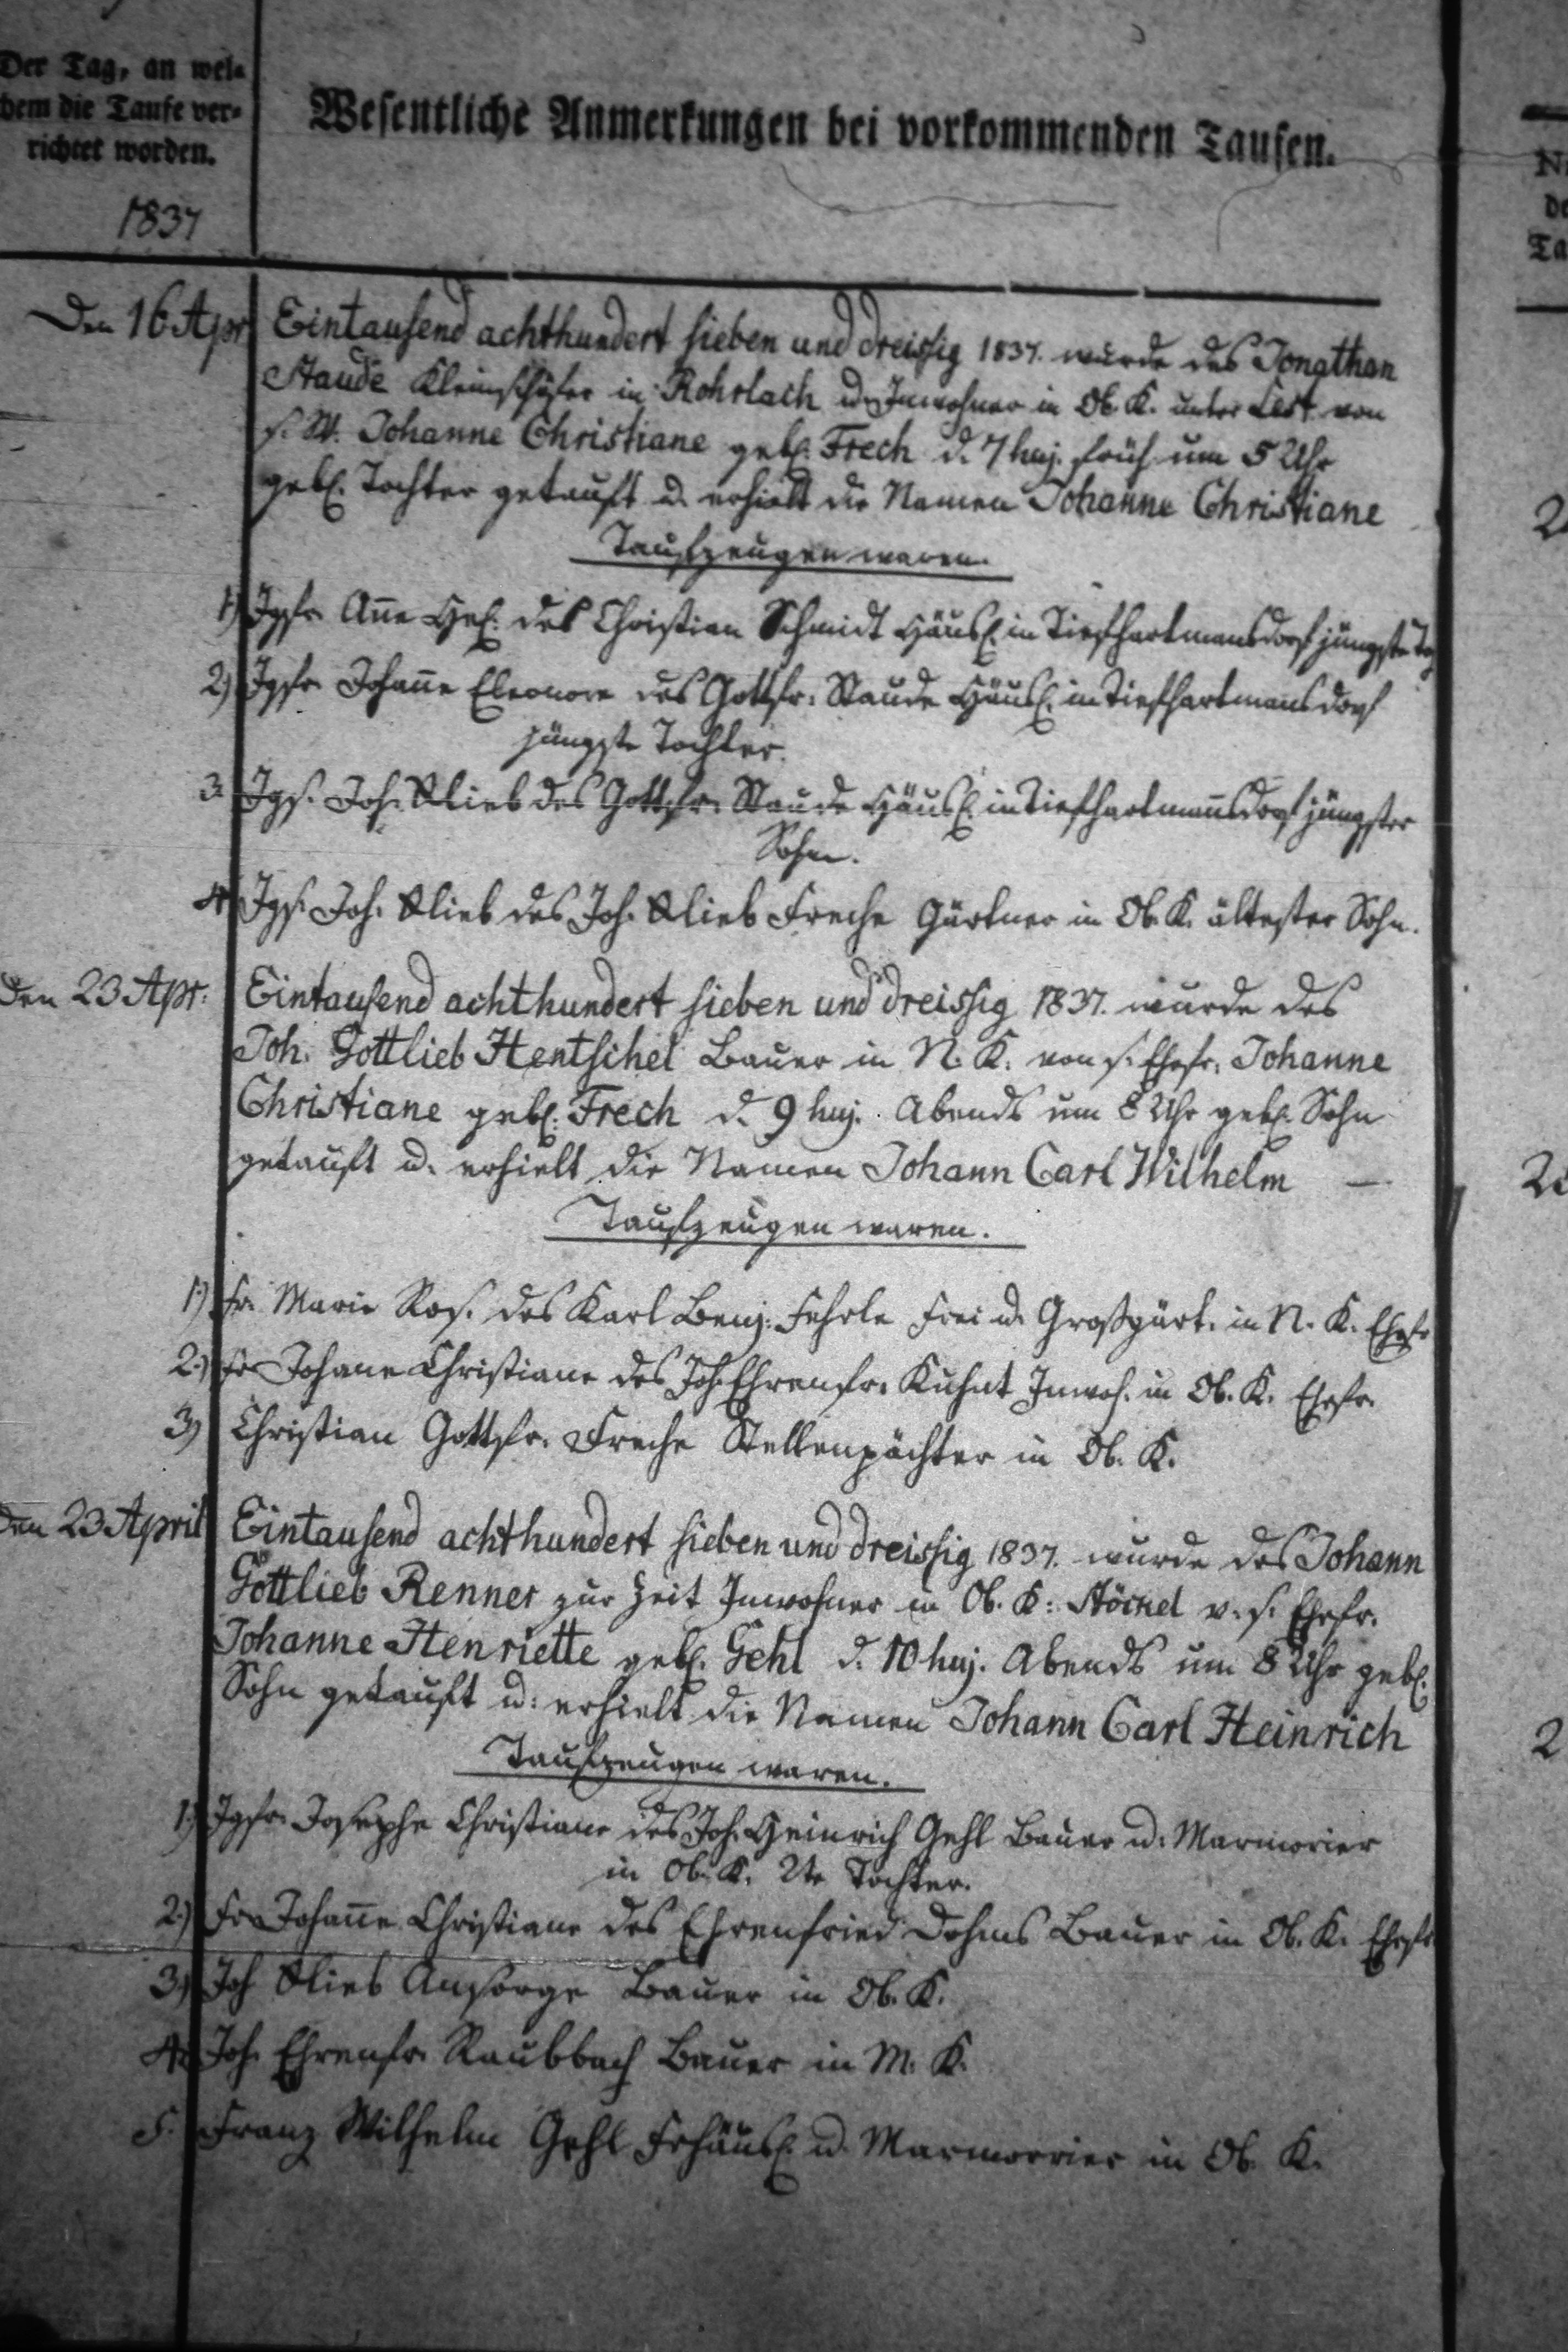 Der Tag, an wel-
chem die Taufe ver-
richtet worden.
1837
Wesentliche Anmerkungen bei vorkommenden Taufen.
Den 16 Apr
Eintausend achthundert sieben und dreissig 1837. wurde des Jonathan
Staude Kleinschäfer in Rohrlach u. Inwohner in Ob. K. unter Lest von
s. W. Johanne Christiane geb. Frech d. 7 huj. früh um 5 Uhr
geb. Tochter getauft u. erhielt die Namen Johanne Christiane
Taufzeugen waren.
1.) Jgfr. Anne des Christian Schmidt Häusl. in Tiefhartmansdorf jüngste
2.) Jgfr. Johanne Eleonore des Gottfr. Staude Häusl. in Tiefhartmansdorf
jüngste Tochter.
3. Jgs. Joh. Glieb des Gottfr. Staude Häusl. in Tiefhartmannsdorf jüngster
Sohn.
4. Jgs. Joh. Glieb des Joh. Glieb Freche Gärtner in Ob. K. ältester Sohn.
Den 23 Apr:
Eintausend achthundert sieben und dreissig 1837. wurde des
Joh. Gottlieb Hentschel Bauer in N. K. von s. Ehefr. Johanne
Christiane geb. Frech d. 9 huj. Abends um 8 Uhr geb. Sohn
getauft u. erhielt die Namen Johann Carl Wilhelm —
Taufzeugen waren.
1.) Fr. Marie Ros. des Karl Benj. Fehrle Frei u. Großgärt. in N. K. Ehefr
2.) Fr Johane Christiane des Joh. Ehrenfr. Kuhnt Inwoh. in Ob. K. Ehefr.
3) Christian Gottfr. Freche Stellenpächter in Ob. K.
Den 23 April
Eintausend achthundert sieben und dreissig 1837. wurde des Johann
Gottlieb Renner zur Zeit Inwohner in Ob. K: Stöckel v. s. Ehefr.
Johanne Henriette geb. Gehl d. 10 huj. Abends um 8 Uhr geb.
Sohn getauft u: erhielt die Namen Johann Carl Heinrich
Taufzeugen waren.
1.) Jgfr. Josephe Christiane des Joh. Heinrich Gehl Bauer u: Marmorier
in Ob. K. 2te Tochter.
2.) Fr. Johanne Christiane des Ehrenfried Dohms Bauer in Ob. K. Ehefr
3.) Joh Glieb Ansorge Bauer in Ob. K.
4. Joh. Ehrenfr. Raubbach Bauer in M. K.
5. Franz Wilhelm Gehl Frhäusl. u. Marmorrier in Ob. K.